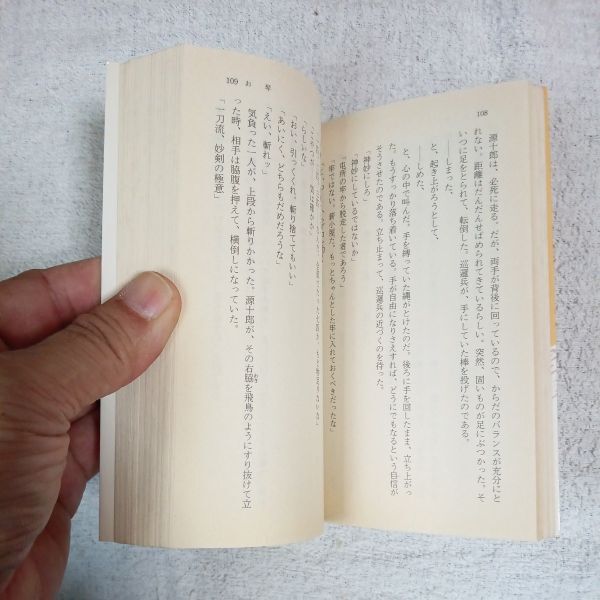 108
源十郎は、必死に走る。だが、両手が背後に回っているので、からだのバランスが充分にと
れない。距離はだんだんせばめられてきているらしい。突然、固いものが足にぶつかった。そ
いつに足をとられて、転倒した。巡邏兵が、手にしていた棒を投げたのである。
――しまった。
と、起き上がろうとして、
――しめた。
と、心の中で叫んだ。手を縛っていた縄がとけたのだ。後ろに手を回したまま、立ち上がっ
た。もうすっかり落ち着いている。手が自由になりさえすれば、どうにでもなるという自信が
そうさせたのである。立ち止まって、巡邏兵の近づくのを待った。
「神妙にしろ」
「神妙にしているではないか」
「屯所の牢から脱走した者であろう」
「牢ではない、薪小屋だ。もっとちゃんとした牢に入れておくべきだったな」
109 お 琴
気は確かか」
「らしいな」
「おい、引っくくれ。斬り捨ててもいい」
「あいにく、どちらもだめだろうな」
「えい、斬れッ」
気負った一人が、上段から斬りかかった。源十郎が、その右脇を飛鳥のようにすり抜けて立
った時、相手は脇腹を押えて、横倒しになっていた。
「一刀流、妙剣の極意」